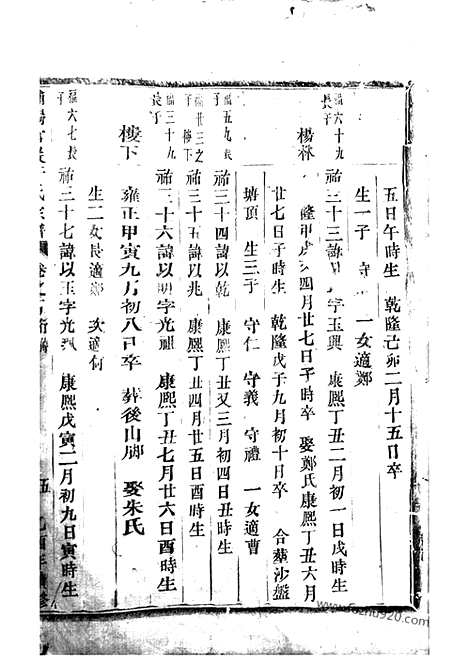 五日午時生 乾隆己卯二月十五日卒
生一子 守 一女適鄭
福六十九長子 祐三十三諱以 字玉興 康熙丁丑二月初一日戌時生
楊林 隆甲戌 四月廿七日子時卒 娶鄭氏康熙丁丑六月
廿七日子時生 乾隆戊子九月初十日卒 合葬沙盤
塘頂 生三子 守仁 守義 守禮 一女適曹
福五九長子 祐三十四諱以乾 康熙丁丑又三月初四日丑時生
福廿三之子樓下 祐三十五諱以兆 康熙丁丑四月廿五日酉時生
福三十九長子 祐三十六諱以明字光祖 康熙丁丑七月廿六日酉時生
樓下 雍正甲寅九月初八日卒 葬後山脚 娶朱氏
生二女長適鄭 次適何
福六七長子 祐三十七諱以玉字光 康熙戊寅二月初九日寅時生
五
www.fozhu920.com